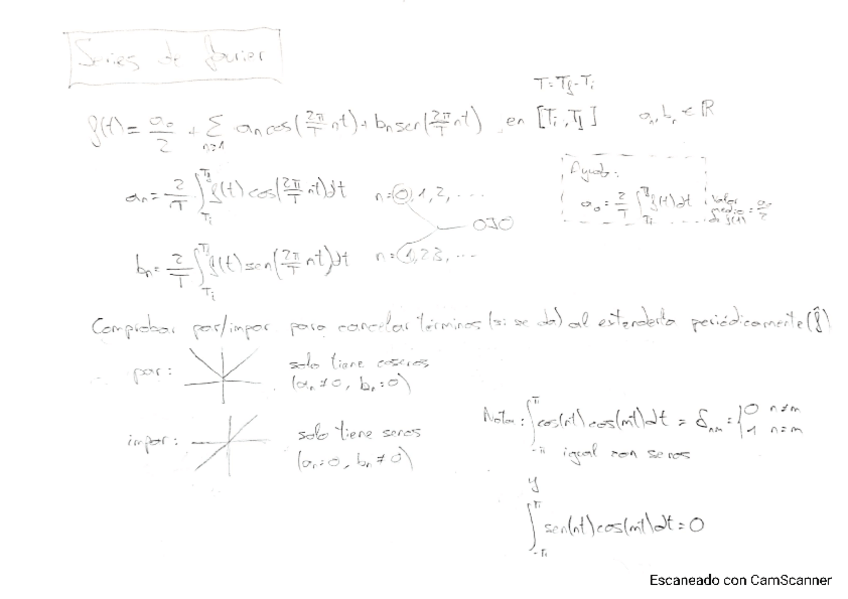 Series de Fourier
T = Tf - Ti
f(t) = a₀/2 + Σ n≥1 an cos(2π/T nt) + bn sen(2π/T nt) en [Ti, Tf] an, bn ∈ ℝ
an = 2/T ∫ Ti Tf f(t) cos(2π/T nt) dt n = 0, 1, 2, ...
OJO
Ayuda:
a₀ = 2/T ∫ Ti Tf f(t) dt
Valor medio de f(t) = a₀/2
bn = 2/T ∫ Ti Tf f(t) sen(2π/T nt) dt n = 1, 2, 3, ...
Comprobar par/impar para cancelar términos (si se da) al extenderlo periódicamente (f̂)
par: solo tiene cosenos
(an ≠ 0, bn = 0)
impar: solo tiene senos
(an = 0, bn ≠ 0)
Nota: ∫ -π π cos(nt) cos(mt) dt = δnm = { 0 n≠m
1 n=m
igual con senos
y
∫ -π π sen(nt) cos(mt) dt = 0
Escaneado con CamScanner